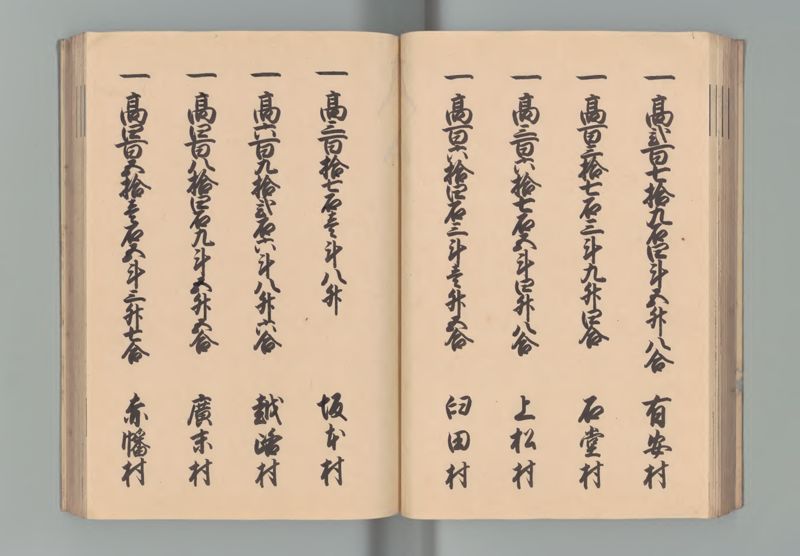 一 高弐百七拾九石四斗五升八合 有安村
一 高百三拾七石三斗九升四合 石堂村
一 高三百六拾七石五斗四升八合 上松村
一 高百六拾四石三斗壱升五合 臼田村
一 高三百拾七石壱斗八升 坂本村
一 高六百九拾弐石六斗八升六合 越路村
一 高四百八拾四石九斗五升五合 廣末村
一 高四百五拾壱石五斗三升七合 赤幡村